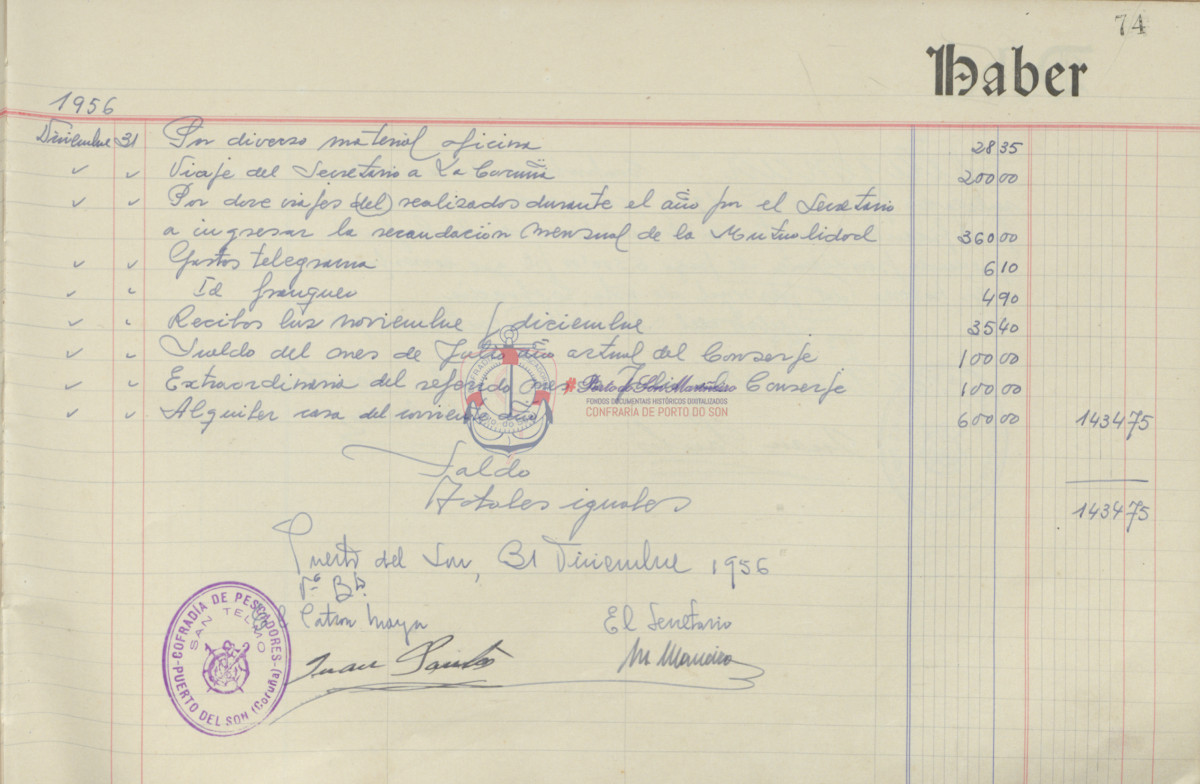 74
Haber
1956
Diciembre 31 Por diverso material oficina 28 35
✓ ✓ Viaje del Secretario a La Coruña 200 00
✓ ✓ Por doce viajes (del) realizados durante el año por el Secretario
a ingresar la recaudación mensual de la Mutualidad 360 00
✓ ✓ Gastos telegrama 6 10
✓ ✓ Id franqueo 4 90
✓ ✓ Recibos luz noviembre y diciembre 35 40
✓ ✓ Sueldo del mes de Julio año actual del Conserje 100 00
✓ ✓ Extraordinaria del referido mes Conserje 100 00
Porto do Son Mariñeiro
FONDOS DOCUMENTAIS HISTÓRICOS DIXITALIZADOS
CONFRARÍA DE PORTO DO SON
✓ ✓ Alquiler casa del corriente año 600 00 1434 75
Saldo
Totales iguales 1434 75
Puerto del Son, 31 Diciembre 1956
Vº Bº
El Patron Mayor El Secretario
Juan Santos
COFRADÍA DE PESCADORES
SAN TELMO
PUERTO DEL SON (Coruña)